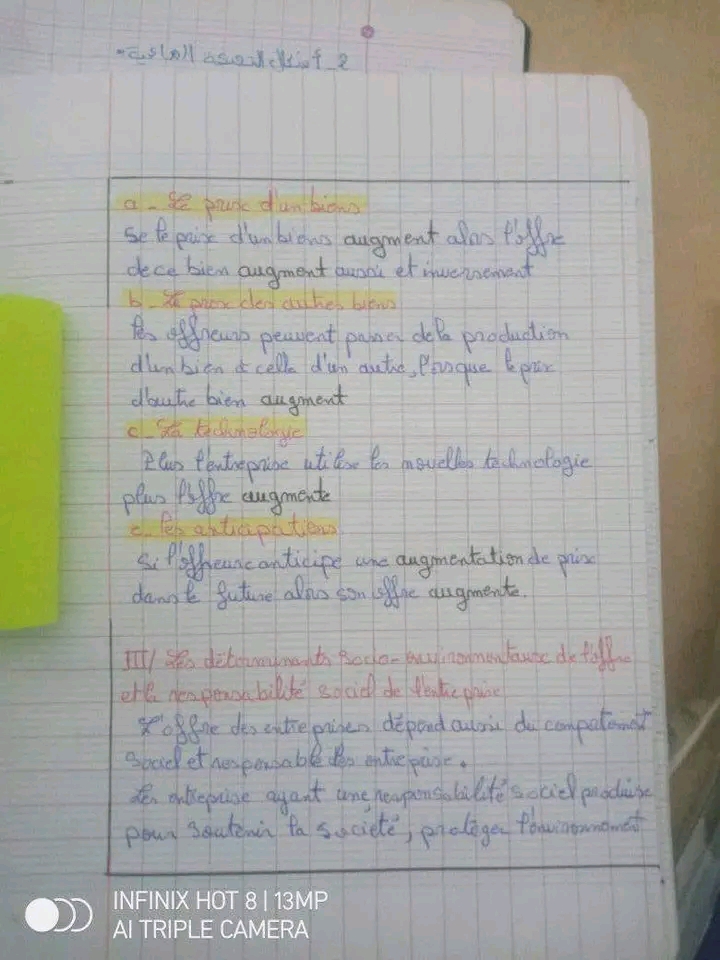 2 - أشكال التوعية
a - Le prix d'un biens
Se le prix d'un biens augment alors l'offre
de ce bien augment aussi et inversement
b - Le prix des autres biens
les offreurs peuvent passer de la production
d'un bien à celle d'un autre, lorsque le prix
d'autre bien augment
c - La technologie
Plus l'entreprise utilise les nouvelles technologie
plus l'offre augmente
c - les anticipations
Si l'offreure anticipe une augmentation de prix
dans le future alors son offre augmente.
III/ Les déterminants socio-environnementaux de l'offre
et la responsabilité sociel de l'entreprise
L'offre des entreprises dépend aussi du compotement
sociel et responsable des entreprise.
Les entreprise ayant une responsabilité sociel produise
pour soutenir la société, protèger l'environnement
INFINIX HOT 8 | 13MP
AI TRIPLE CAMERA